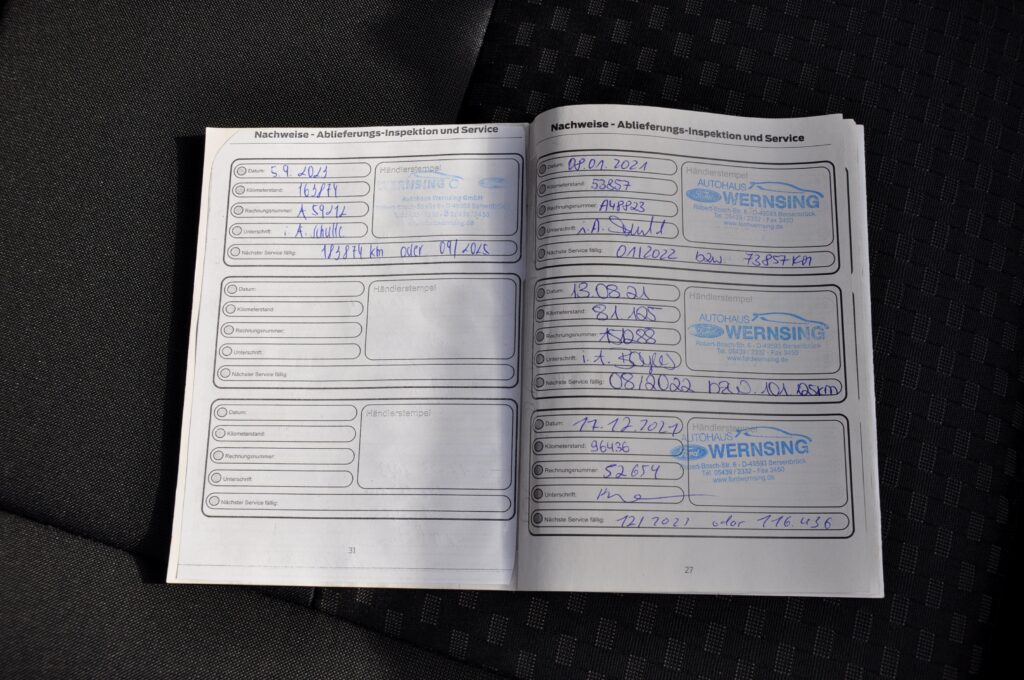 Nachweise - Ablieferungs-Inspektion und Service
Datum: 5.9. 2023
Händlerstempel
Kilometerstand: 163874
WERNSING
Autohaus Wernsing GmbH
Rechnungsnummer:
Unterschrift: i. A. Schulte
Nächster Service fällig: 183874 km oder 09/2025
Datum:
Händlerstempel
Kilometerstand:
Rechnungsnummer:
Unterschrift:
Nächster Service fällig:
Datum:
Händlerstempel
Kilometerstand:
Rechnungsnummer:
Unterschrift:
Nächster Service fällig:
31
Nachweise - Ablieferungs-Inspektion und Service
Datum: 08.01.2021
Händlerstempel
Kilometerstand: 53857
AUTOHAUS
Ford WERNSING
Rechnungsnummer: A48823
Robert-Bosch-Str. 6 · D-49593 Bersenbrück
Tel. 05439 / 2332 - Fax 3450
www.fordwernsing.de
Unterschrift:
Nächster Service fällig: 01/2022 bzw. 73857 km
Datum: 13.08.21
Händlerstempel
Kilometerstand: 81.125
AUTOHAUS
Ford WERNSING
Rechnungsnummer:
Robert-Bosch-Str. 6 · D-49593 Bersenbrück
Tel. 05439 / 2332 - Fax 3450
www.fordwernsing.de
Unterschrift:
Nächster Service fällig: 08/2022 bzw. 101.125km
Datum: 17.12.2021
Händlerstempel
AUTOHAUS
Kilometerstand: 96436
Ford WERNSING
Robert-Bosch-Str. 6 · D-49593 Bersenbrück
Rechnungsnummer: 52654
Tel. 05439 / 2332 - Fax 3450
www.fordwernsing.de
Unterschrift:
Nächster Service fällig: 12/2023 oder 116.436
27